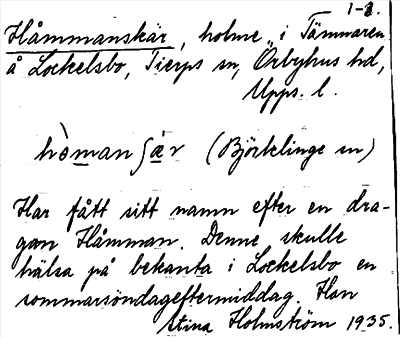 1-2.
Håmmanskär, holme i Tämnaren
å Lockelsbo, Tierps sn, Örbyhus hd,
Upps. l.
hòmanʃæ̀r (Björklinge sn)
Har fått sitt namn efter en dra-
gon Håmman. Denne skulle
hälsa på bekanta i Lockelsbo en
sommarsöndageftermiddag. Han
Stina Holmström 1935.